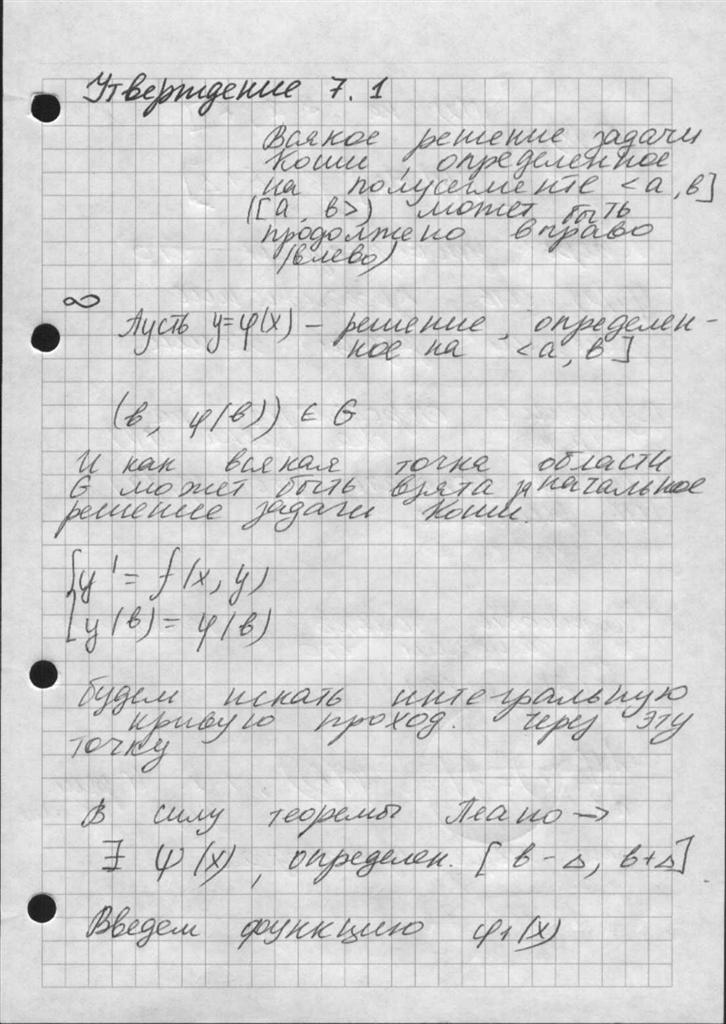 Утверждение 7.1
Всякое решение задачи
Коши, определенное
на полусегменте <a, в]
([a, в>) может быть
продолжено вправо
(влево)
∞
Пусть y=φ(x) – решение, определен-
ное на <a, в]
(в, φ(в)) ∈ G
И как всякая точка области
G может быть взята за начальное
решение задачи Коши.
y' = f(x, y)
y(в) = φ(в)
будем искать интегральную
кривую проход. через эту
точку
В силу теоремы Пеано →
∃ ψ(x), определен. [в-Δ, в+Δ]
Введем функцию φ1(x)